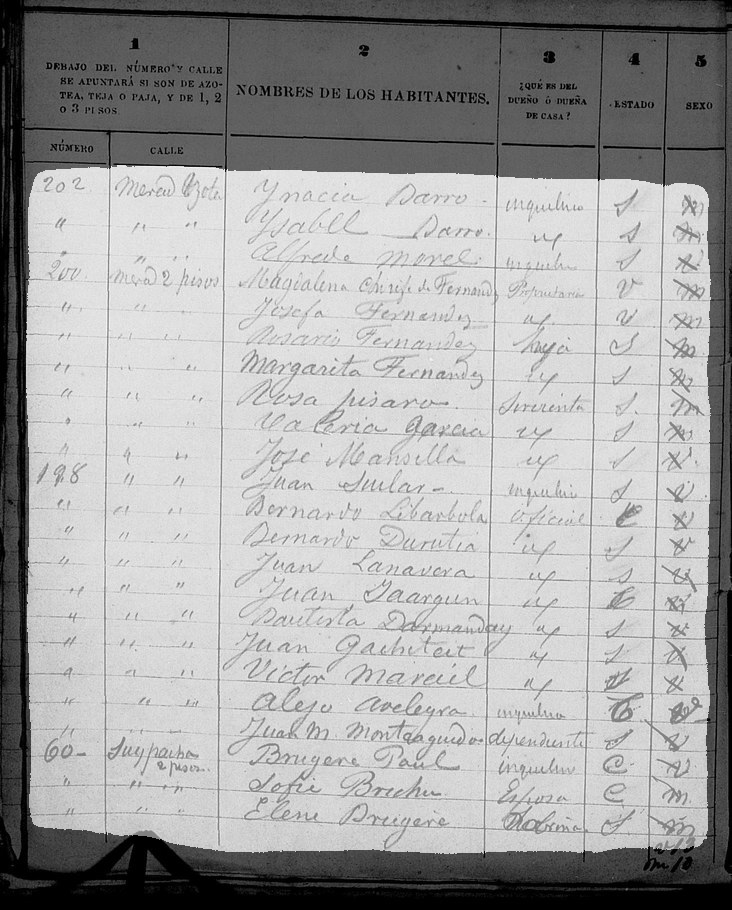 1 2 3 4 5
DEBAJO DEL NÚMERO Y CALLE SE APUNTARÁ SI SON DE AZOTEA, TEJA O PAJA, Y DE 1, 2 O 3 PISOS
NOMBRES DE LOS HABITANTES.
¿QUÉ ES DEL DUEÑO Ó DUEÑA DE CASA?
ESTADO
SEXO
NÚMERO CALLE
202 Ynacia Darro - inquilino S m
" " " Ysabell Darro. " S m
" " " Alfredo Morel inquilin S V
200 2 pisos Magdalena de Fernandz Propietaria V m
" " " Josefa Fernandez " V m
" " " Rosario Fernandez hija S m
" " " Margarita Fernandez " S m
" " " Rosa pisaro. Sirvienta S. m
" " " Valeria Garcia " S m
" " " José Mansilla " S V
198 " " Juan - inquilin S V
" " " Bernardo Libarbola oficial C V
" " " Bernardo Durutia " S V
" " " Juan Lanavera " S V
" " " Juan " C V
" " " Bautista Darmanday " S V
" " " Juan Gachiteit " S V
" " " Victor Marciel " S V
" " " Alejo Aveleyra inquilino C V
" " " Juan M. dependiente S V
60- Suypacha 2 pisos. Brugere Paul inquilin C V
" " " Sofie Esposa C m.
" " " Elene Brugere Sobrina S m
m 10